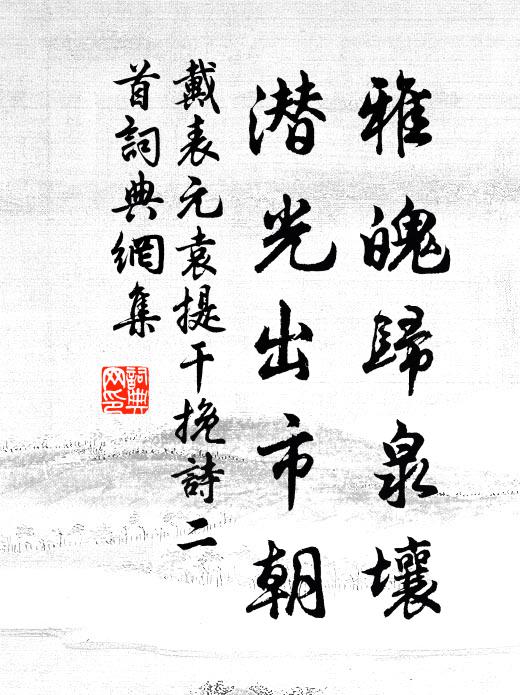 雅魄歸泉壤
潜光出市朝
戴表元袁提干挽詩二
首詞典網集
詞典
网印